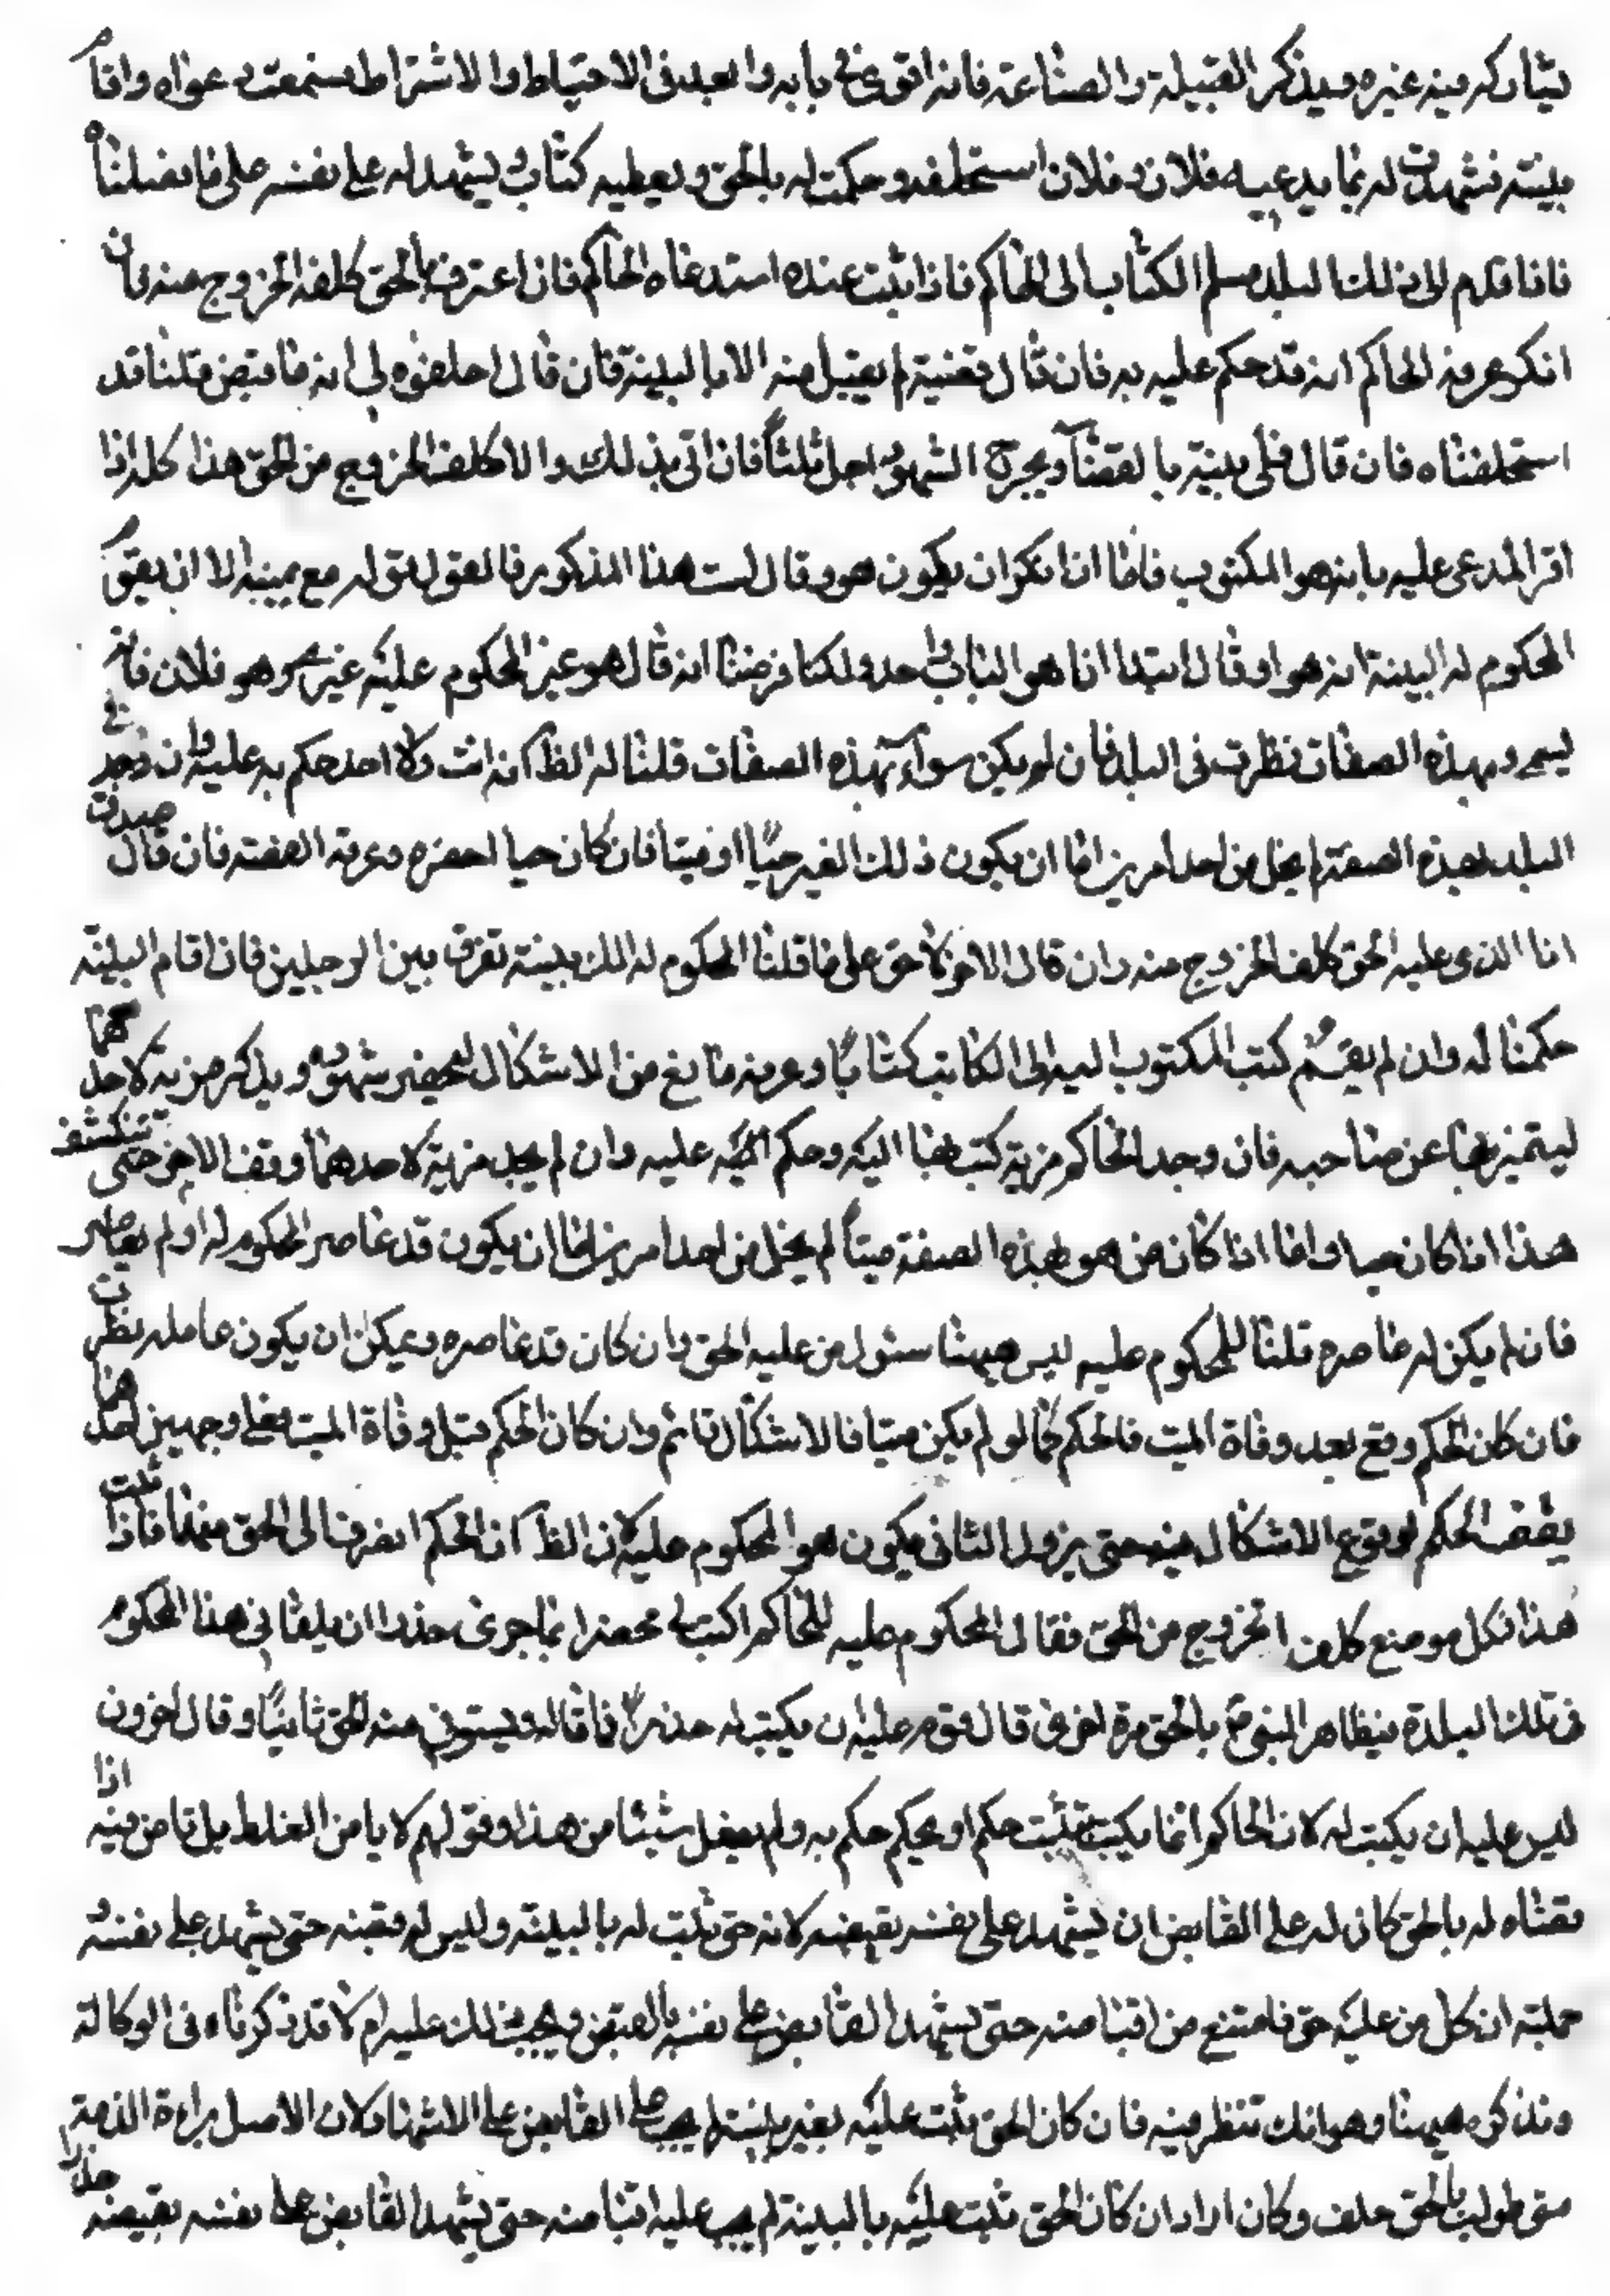 يشاركه فيه غيره ويذكر القبيلة والصناعة فانه اقوى في بابه وابعد في الاحتياط والاشتراط سمعت دعواه واقام
بينته فشهدت له بما يدعيه فلان وفلان استحلفه وحكمت له بالحق ويعطيه كتابا ويشهد له على نفسه على ما فصلناه
فاذا قدم الى ذلك البلد سلم الكتاب الى الحاكم فاذا ثبت عنده استدعاه الحاكم فان اعترف بالحق كلفه الخروج منه فان
انكر عرفه الحاكم انه قد حكم عليه به فان قال قضيته لم يقبل منه الا بالبينة فان قال احلفوه لي انه ما قبض قلنا قد
استحلفناه فان قال فلي بينة بالقضآء ويجرح الشهود اجل ثلثا فان اتى بذلك والا كلف الخروج من الحق هذا كله اذا
اقر المدعى عليه بانه هو المكتوب فاما اذا انكر ان يكون هو وقال لست هذا المذكور فالقول قوله مع يمينه الا ان يقيم
المحكوم له البينة انه هو او قال ابتدا انا هو الباب واحد ولكنا فرضنا انه قال هو غير المحكوم عليه غيري وهو فلان فانه
يسمى وبهذه الصفات نظرت في البلد فان لم يكن سوآه بهذه الصفات قلنا له الظ انه انت ولا احد حكم به عليه وان وجد في
البلد بهذه الصفة لم يخل من احد امرين اما ان يكون ذلك الغير حيا او ميتا فان كان حيا احضره وعرفه القصة فان قال صدقت
انا الذي عليه الحق كلف الخروج منه وان قال الاخر لا حق علي قلنا للمحكوم له الك بينة تفرق بين الرجلين فان اقام البينة
حكمنا له وان لم يقم كتب المكتوب اليه الى الكاتب كتابا وعرفه ما وقع من الاشكال ليحضر شهوده ويذكر مزية لاحدهما
ليتميز بها عن صاحبه فان وجد الحاكم مزية كتب بها اليه وحكم عليه وان لم يجد مزية لاحدهما وقف الامر حتى تنكشف
هذا اذا كان حيا واما اذا كان من هو بهذه الصفة ميتا لم يخل من احد امرين اما ان يكون قد عاصر المحكوم له او لم يعاصر
فان لم يكن له عاصره قلنا للمحكوم عليه ليس هيهنا سئول من عليه الحق وان كان قد عاصره ويمكن ان يكون عامله نظرت
فان كان الحكم وقع بعد وفاة الميت فالحكم كما لو لم يكن ميتا فالاشكال قائم وان كان الحكم قبل وفاة الميت فعلى وجهين احدهما
يقف الحكم لوقوع الاشكال فيه حتى يزول الثاني يكون هو المحكوم عليه لان الظ ان الحكم انصرف الى الحق منهما فاذا ثبت
هذا فكل موضع كلف الخروج من الحق فقال المحكوم عليه للحاكم اكتب لي محضرا بما جرى حذرا ان يلقاني هذا المحكوم
في تلك البلدة فيطالبني بالحق مرة اخرى قال قوم عليه ان يكتب له حذرا مما قاله ويستوفي منه الحق ثانيا وقال اخرون
ليس عليه ان يكتب له لان الحاكم انما يكتب ثبت حكم او يحكم حكم به ولم يفعل شيئا من هذا وقولهم لا يامن الغلط بل تامن فيه اذا
قضاه له بالحق كان له على القابض ان يشهد على نفسه بقبضه لانه حق ثبت له بالبينة وليس له قبضه حتى يشهد على نفسه و
جملته ان كل من عليه حق فامتنع من اقباضه حتى يشهد القابض على نفسه بالقبض ويجب ذلك عليه ام لا قد ذكرناه في الوكالة
ونذكره هيهنا وهو انك تنظر فيه فان كان الحق ثبت عليه بغير بينة لم يجب على القابض على الاشهاد لان الاصل براءة الذمة
متى طولب بالحق حلف وكان ابرا وان كان الحق ثبت عليه بالبينة لم يجب عليه اقباضه حتى يشهد القابض على نفسه بقبضه حذرا